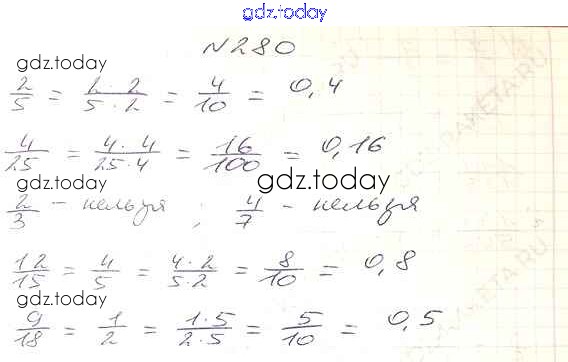 gdz.today
№280
gdz.today
2/5 = 2·2/5·2 = 4/10 = 0,4
4/25 = 4·4/25·4 = 16/100 = 0,16
gdz.today
gdz.today
2/3 – нельзя ; 4/7 – нельзя
12/15 = 4/5 = 4·2/5·2 = 8/10 = 0,8
gdz.today
9/18 = 1/2 = 1·5/2·5 = 5/10 = 0,5